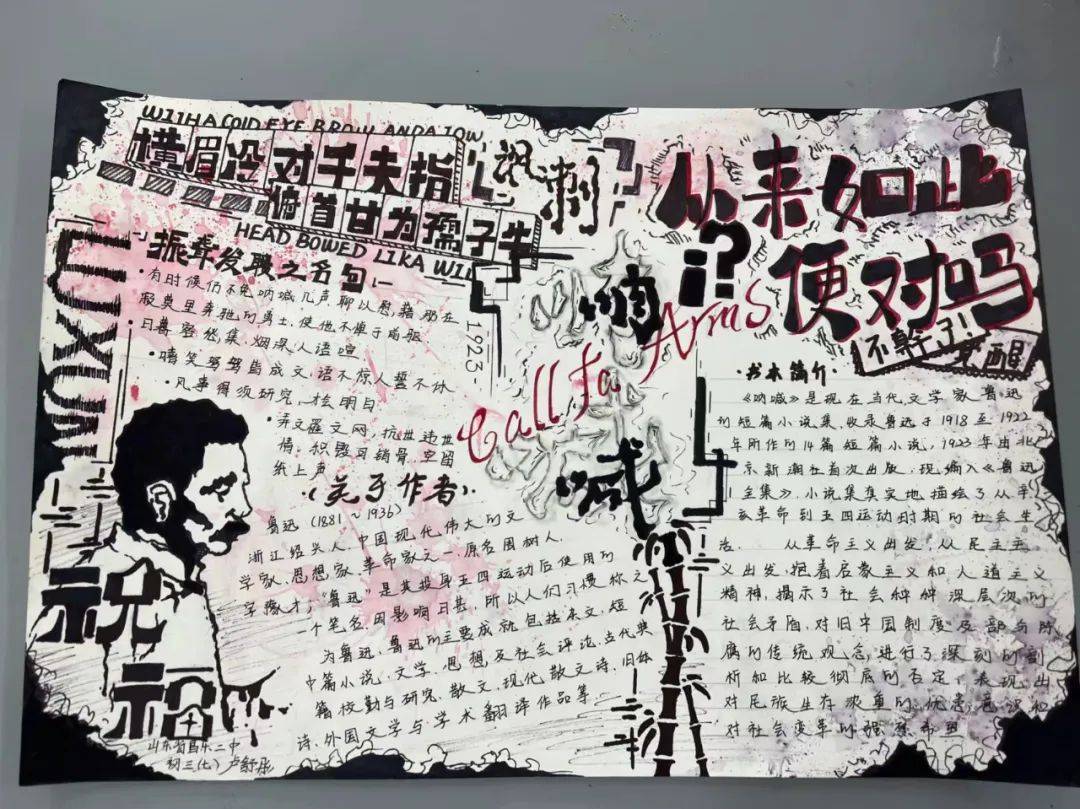 WITH A COLD EYE BROW AND A LOW
横眉冷对千夫指
俯首甘为孺子牛
HEAD BOWED LIKA WIL
讽刺
从来如此
便对吗
?
振聋发聩之名句
·有时候仍不免呐喊几声聊以慰藉那在
寂寞里奔驰的勇士,使他不惮于前驱
·嘻笑怒骂皆成文,语不惊人誓不休
·凡事得须研究,才会明白
·弄文罹文网,抗世违世
情,积毁可销骨,空留
纸上声
1923-
LUXUN
呐
喊
Call for Arms
(关于作者)
鲁迅(1881~1936)
浙江绍兴人,中国现代伟大的文
学家,思想家,革命家之一,原名周树人,
字豫才,"鲁迅"是其投身五四运动后使用的
个笔名,因影响日甚,所以人们习惯称之
为鲁迅,鲁迅的主要成就包括杂文,短
中篇小说,文学,思想及社会评论,古代典
籍校勘与研究,散文,现代散文诗,旧体
诗,外国文学与学术翻译作品等
祝
福
山东省昌乐二中
初三(七)卢舒彤
不算了!
醒
·书本简介·
《呐喊》是现在当代文学家鲁迅
的短篇小说集,收录鲁迅于1918至1922
年所作的14篇短篇小说,1923年由北
京新潮社首次出版,现编入《鲁迅
全集》,小说集真实地描绘了从辛
亥革命到五四运动时期的社会生
活, 从革命主义出发,从民主主
义出发,抱着启蒙主义和人道主义
精神,揭示了社会种种深层次的
社会矛盾,对旧中国制度及部分陈
腐的传统观念,进行了深刻的剖
析和比较彻底的否定,表现出
对民族生存浓重的忧患意识和
对社会变革的强烈希望